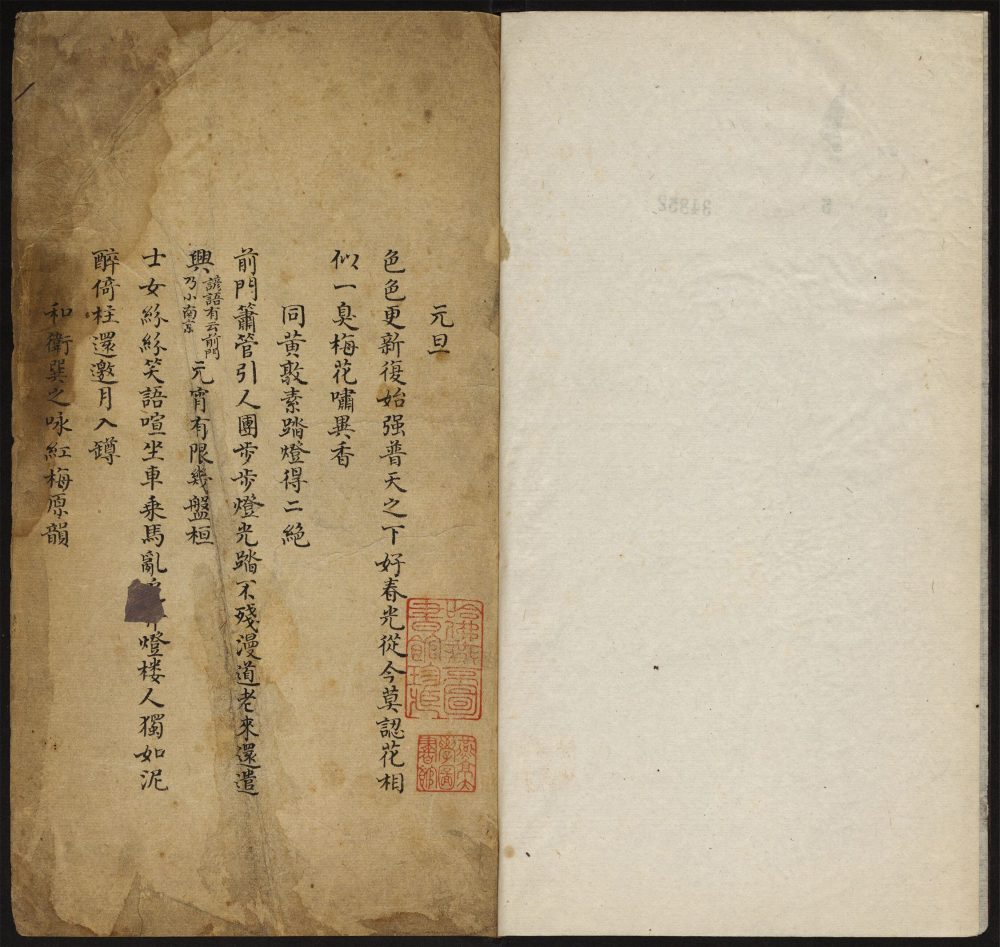 元旦
色色更新復始强普天之下好春光從今莫認花相
似一臭梅花嘯異香
同黄敦素踏燈得二絶
前門簫管引人團步步燈光踏不殘漫道老來還遣
興諺語有云前門乃小南京元宵有限幾盤桓
士女絲絲笑語喧坐車乘馬亂燈楼人獨如泥
醉倚柱還邀月入罇
和衛巽之咏紅梅原韻
哈佛燕京圖書館珍藏
燕京大學圖書館
34952
5